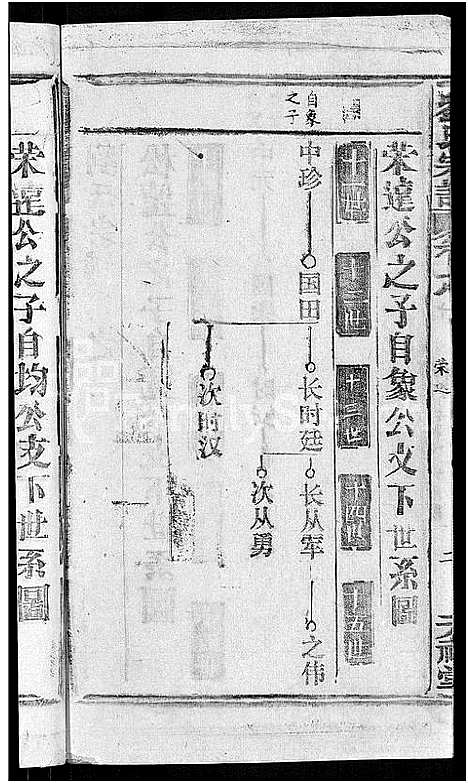 荣達公之子自象公支下世系圖
十一世
十二世
十三世
十四世
十五世
自象之子
中珍
国田
长时廷
长从军
之伟
次从勇
次时汉
荣達公之子自均公支下世系圖